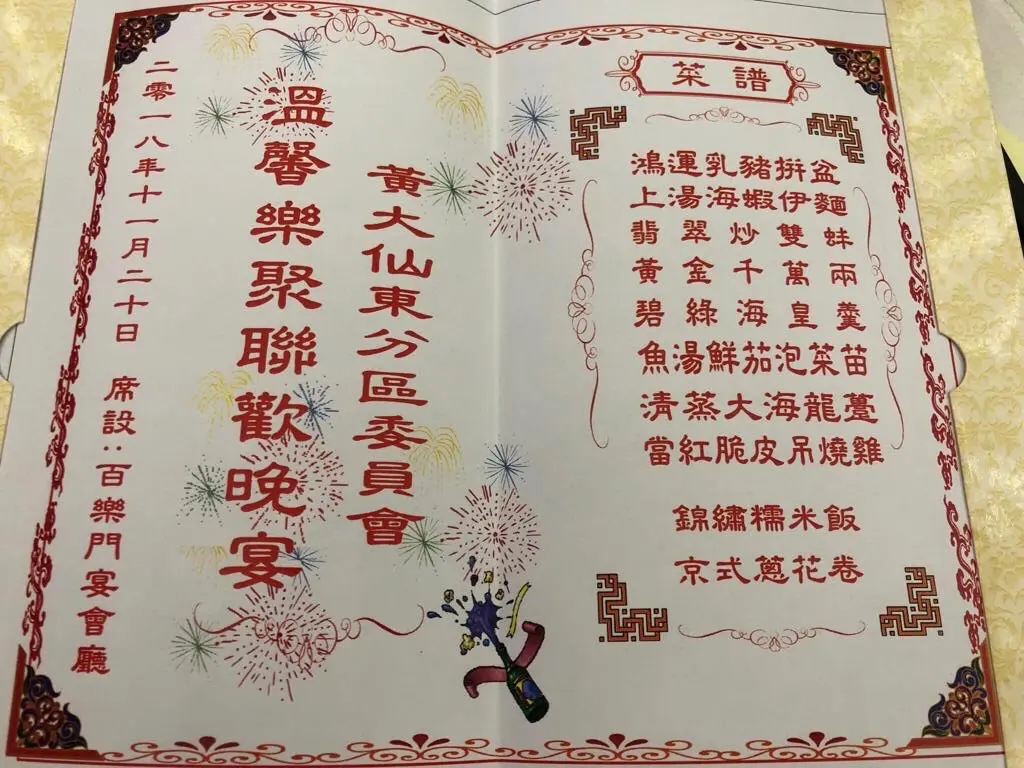 菜譜
鴻運乳豬拼盆
上湯海蝦伊麵
翡翠炒雙蚌
黃金千萬兩
碧綠海皇羹
魚湯鮮茄泡菜苗
清蒸大海龍躉
當紅脆皮吊燒雞
錦繡糯米飯
京式蔥花卷
黃大仙東分區委員會
溫馨樂聚聯歡晚宴
二零一八年十一月二十日 席設：百樂門宴會廳